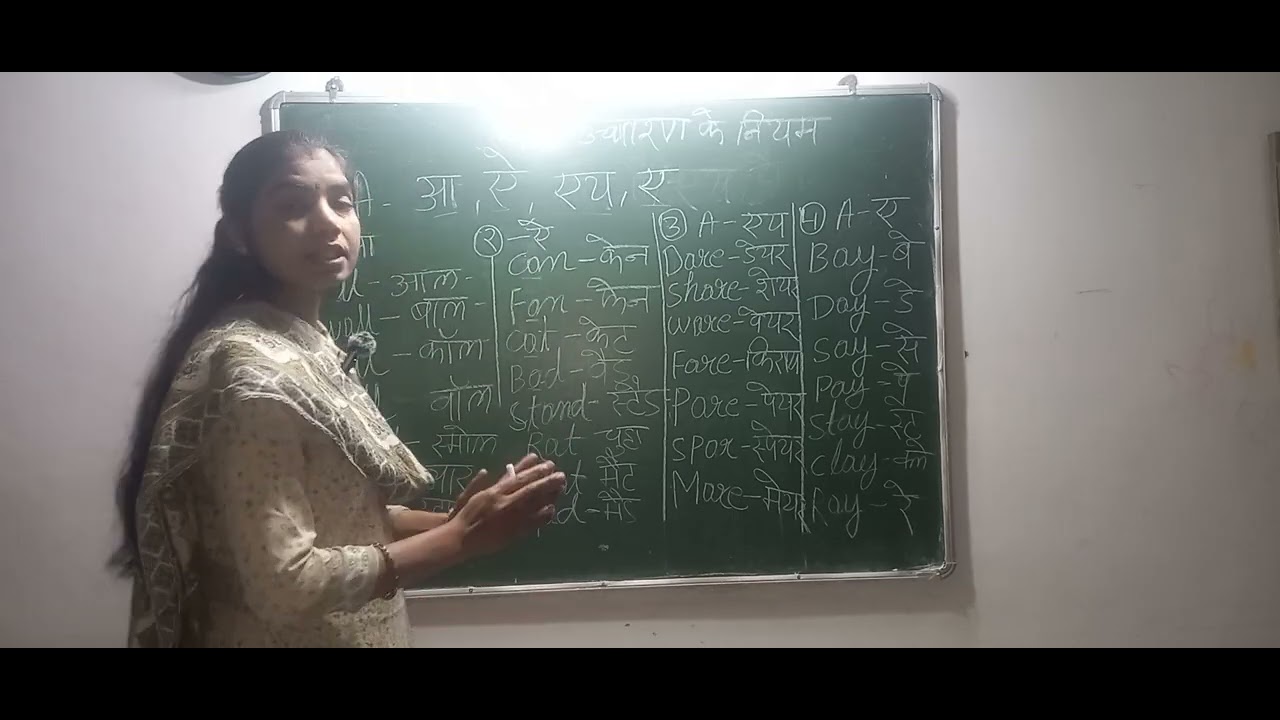 उच्चारण के नियम
A- आ, ऐ, एय, ए
२ -ऐ
Can-केन
Fan-फेन
Cat-केट
Bad-बेड
Stand-स्टेंड
Rat-चूहा
मैट
मैड
३ A-एय
Dare-डेयर
Share-शेयर
ware-वेयर
Fare-किराया
Pare-पेयर
SPar-स्पेयर
Mare-मेयर
4 A-ए
Bay-बे
Day-डे
Say-से
Pay-पे
Stay-स्टे
Clay-क्ले
Ray-रे
आल-
बाल-
कॉल
वॉल
स्मोल